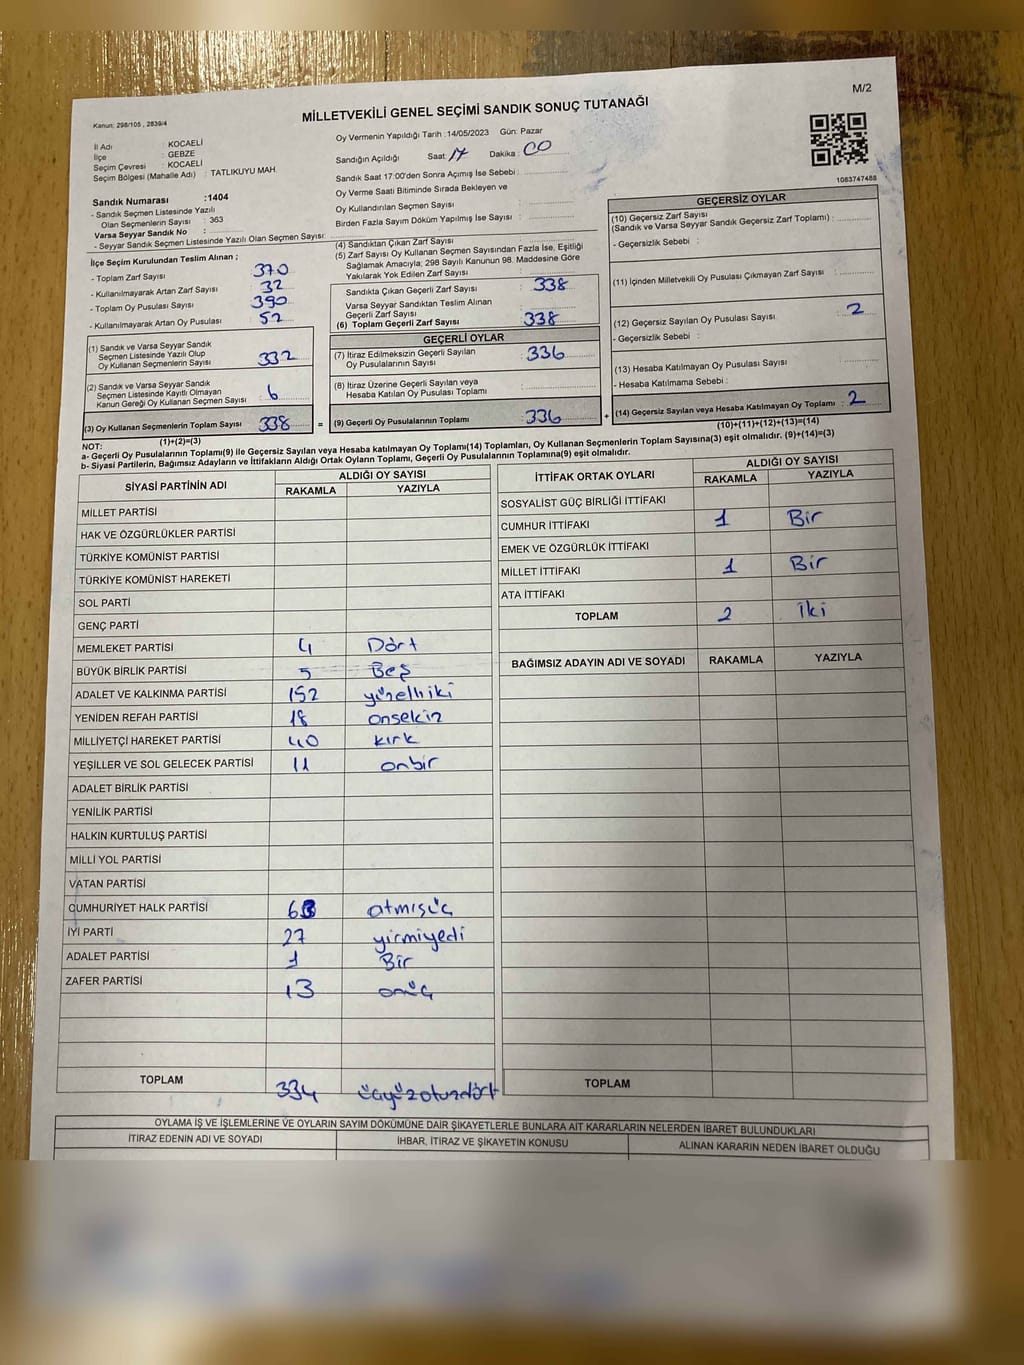 M/2
MİLLETVEKİLİ GENEL SEÇİMİ SANDIK SONUÇ TUTANAĞI
Kanun: 298/105 , 2839/4
İl Adı : KOCAELİ
İlçe : GEBZE
Seçim Çevresi : KOCAELİ
Seçim Bölgesi (Mahalle Adı) : TATLIKUYU MAH.
Oy Vermenin Yapıldığı Tarih :14/05/2023 Gün: Pazar
Sandığın Açıldığı Saat : 17 Dakika : 00
Sandık Saat 17:00'den Sonra Açımış İse Sebebi :
Oy Verme Saati Bitiminde Sırada Bekleyen ve
Oy Kullandırılan Seçmen Sayısı :
Birden Fazla Sayım Döküm Yapılmış İse Sayısı :
1083747488
Sandık Numarası :1404
- Sandık Seçmen Listesinde Yazılı
Olan Seçmenlerin Sayısı : 363
Varsa Seyyar Sandık No :
- Seyyar Sandık Seçmen Listesinde Yazılı Olan Seçmen Sayısı:
İlçe Seçim Kurulundan Teslim Alınan ;
- Toplam Zarf Sayısı : 370
- Kullanılmayarak Artan Zarf Sayısı : 32
- Toplam Oy Pusulası Sayısı : 390
- Kullanılmayarak Artan Oy Pusulası : 52
(1) Sandık ve Varsa Seyyar Sandık
Seçmen Listesinde Yazılı Olup
Oy Kullanan Seçmenlerin Sayısı : 332
(2) Sandık ve Varsa Seyyar Sandık
Seçmen Listesinde Kayıtlı Olmayan
Kanun Gereği Oy Kullanan Seçmen Sayısı : 6
(3) Oy Kullanan Seçmenlerin Toplam Sayısı : 338
(1)+(2)=(3)
(4) Sandıktan Çıkan Zarf Sayısı
(5) Zarf Sayısı Oy Kullanan Seçmen Sayısından Fazla İse, Eşitliği
Sağlamak Amacıyla; 298 Sayılı Kanunun 98. Maddesine Göre
Yakılarak Yok Edilen Zarf Sayısı :
Sandıkta Çıkan Geçerli Zarf Sayısı : 338
Varsa Seyyar Sandıktan Teslim Alınan
Geçerli Zarf Sayısı :
(6) Toplam Geçerli Zarf Sayısı : 338
GEÇERLİ OYLAR
(7) İtiraz Edilmeksizin Geçerli Sayılan
Oy Pusulalarının Sayısı : 336
(8) İtiraz Üzerine Geçerli Sayılan veya
Hesaba Katılan Oy Pusulası Toplamı :
= (9) Geçerli Oy Pusulalarının Toplamı : 336 +
GEÇERSİZ OYLAR
(10) Geçersiz Zarf Sayısı
(Sandık ve Varsa Seyyar Sandık Geçersiz Zarf Toplamı) :
- Geçersizlik Sebebi :
(11) İçinden Milletvekili Oy Pusulası Çıkmayan Zarf Sayısı :
(12) Geçersiz Sayılan Oy Pusulası Sayısı : 2
- Geçersizlik Sebebi :
(13) Hesaba Katılmayan Oy Pusulası Sayısı :
- Hesaba Katılmama Sebebi :
(14) Geçersiz Sayılan veya Hesaba Katılmayan Oy Toplamı : 2
(10)+(11)+(12)+(13)=(14)
NOT:
a- Geçerli Oy Pusulalarının Toplamı(9) ile Geçersiz Sayılan veya Hesaba katılmayan Oy Toplamı(14) Toplamları, Oy Kullanan Seçmenlerin Toplam Sayısına(3) eşit olmalıdır. (9)+(14)=(3)
b- Siyasi Partilerin, Bağımsız Adayların ve İttifakların Aldığı Ortak Oyların Toplamı, Geçerli Oy Pusulalarının Toplamına(9) eşit olmalıdır.
SİYASİ PARTİNİN ADI ALDIĞI OY SAYISI
RAKAMLA YAZIYLA
MİLLET PARTİSİ
HAK VE ÖZGÜRLÜKLER PARTİSİ
TÜRKİYE KOMÜNİST PARTİSİ
TÜRKİYE KOMÜNİST HAREKETİ
SOL PARTİ
GENÇ PARTİ
MEMLEKET PARTİSİ 4 Dört
BÜYÜK BİRLİK PARTİSİ 5 Beş
ADALET VE KALKINMA PARTİSİ 152 yüzelliiki
YENİDEN REFAH PARTİSİ 18 onsekiz
MİLLİYETÇİ HAREKET PARTİSİ 40 kırk
YEŞİLLER VE SOL GELECEK PARTİSİ 11 onbir
ADALET BİRLİK PARTİSİ
YENİLİK PARTİSİ
HALKIN KURTULUŞ PARTİSİ
MİLLİ YOL PARTİSİ
VATAN PARTİSİ
CUMHURİYET HALK PARTİSİ 63 atmışüç
İYİ PARTİ 27 yirmiyedi
ADALET PARTİSİ 1 Bir
ZAFER PARTİSİ 13 onüç
TOPLAM 334 üçyüzotuzdört
İTTİFAK ORTAK OYLARI ALDIĞI OY SAYISI
RAKAMLA YAZIYLA
SOSYALİST GÜÇ BİRLİĞİ İTTİFAKI
CUMHUR İTTİFAKI 1 Bir
EMEK VE ÖZGÜRLÜK İTTİFAKI
MİLLET İTTİFAKI 1 Bir
ATA İTTİFAKI
TOPLAM 2 İki
BAĞIMSIZ ADAYIN ADI VE SOYADI RAKAMLA YAZIYLA
TOPLAM
OYLAMA İŞ VE İŞLEMLERİNE VE OYLARIN SAYIM DÖKÜMÜNE DAİR ŞİKAYETLERLE BUNLARA AİT KARARLARIN NELERDEN İBARET BULUNDUKLARI
İTİRAZ EDENİN ADI VE SOYADI İHBAR, İTİRAZ VE ŞİKAYETİN KONUSU ALINAN KARARIN NEDEN İBARET OLDUĞU